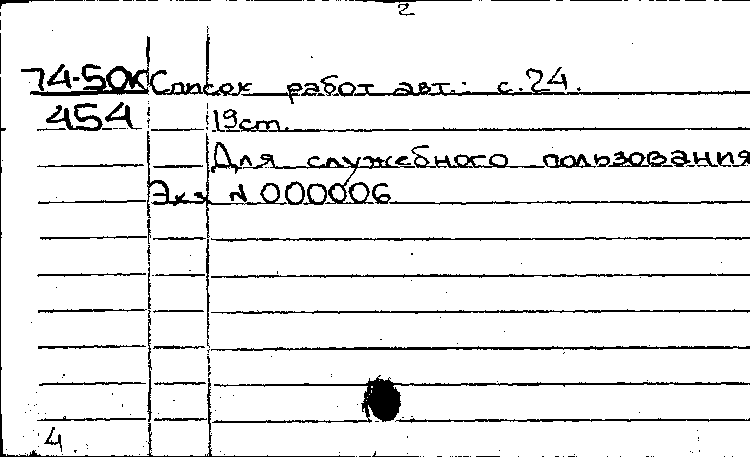 2
74-50К Список работ авт.: с.24.
454 19 cm.
Для служебного пользования
Экз N 000006
4